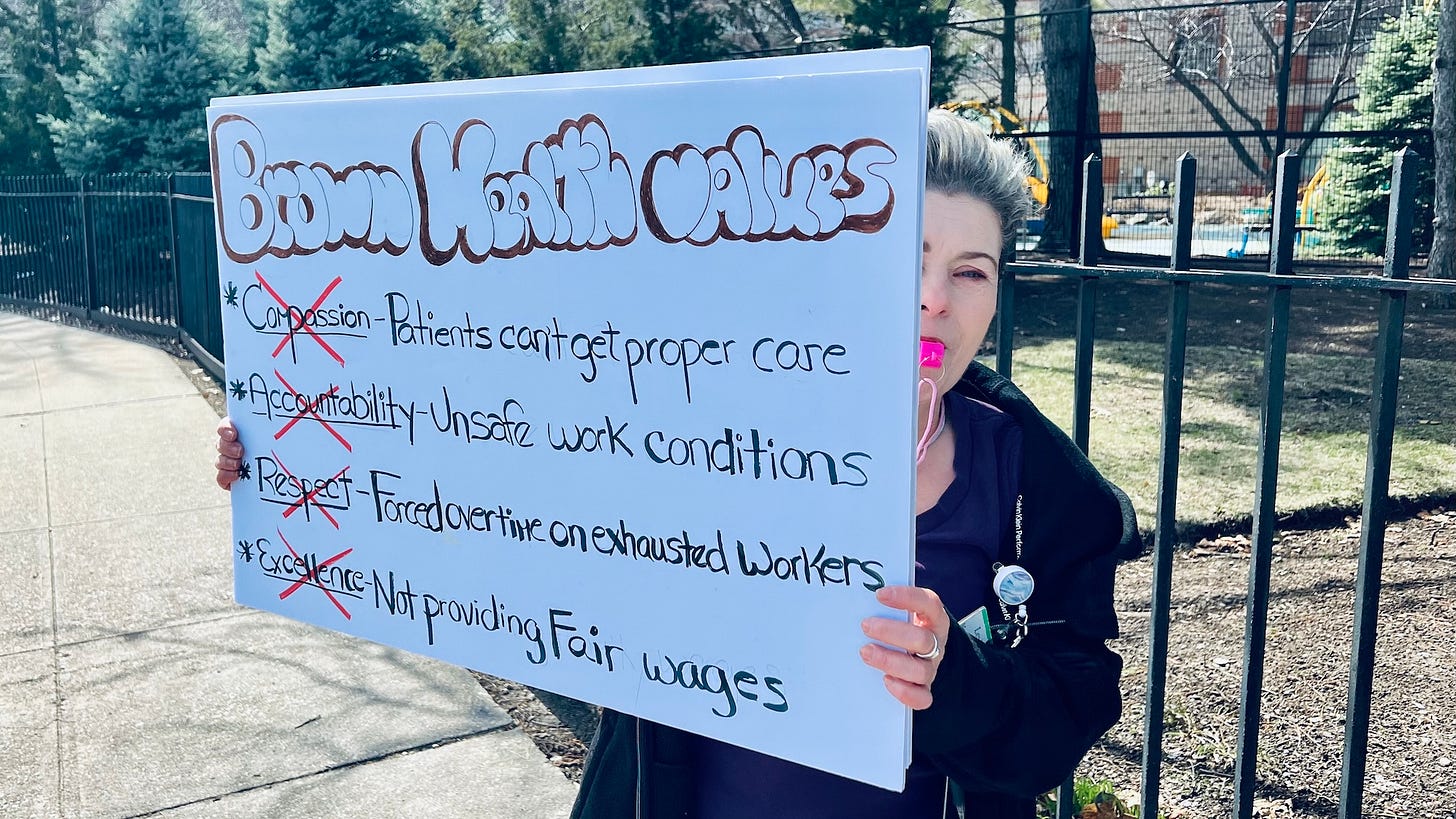 Brown Health Values
* Compassion - Patients can't get proper care
* Accountability - Unsafe work conditions
* Respect - Forced overtime on exhausted Workers
* Excellence - Not providing Fair wages
Calvin Klein Perform